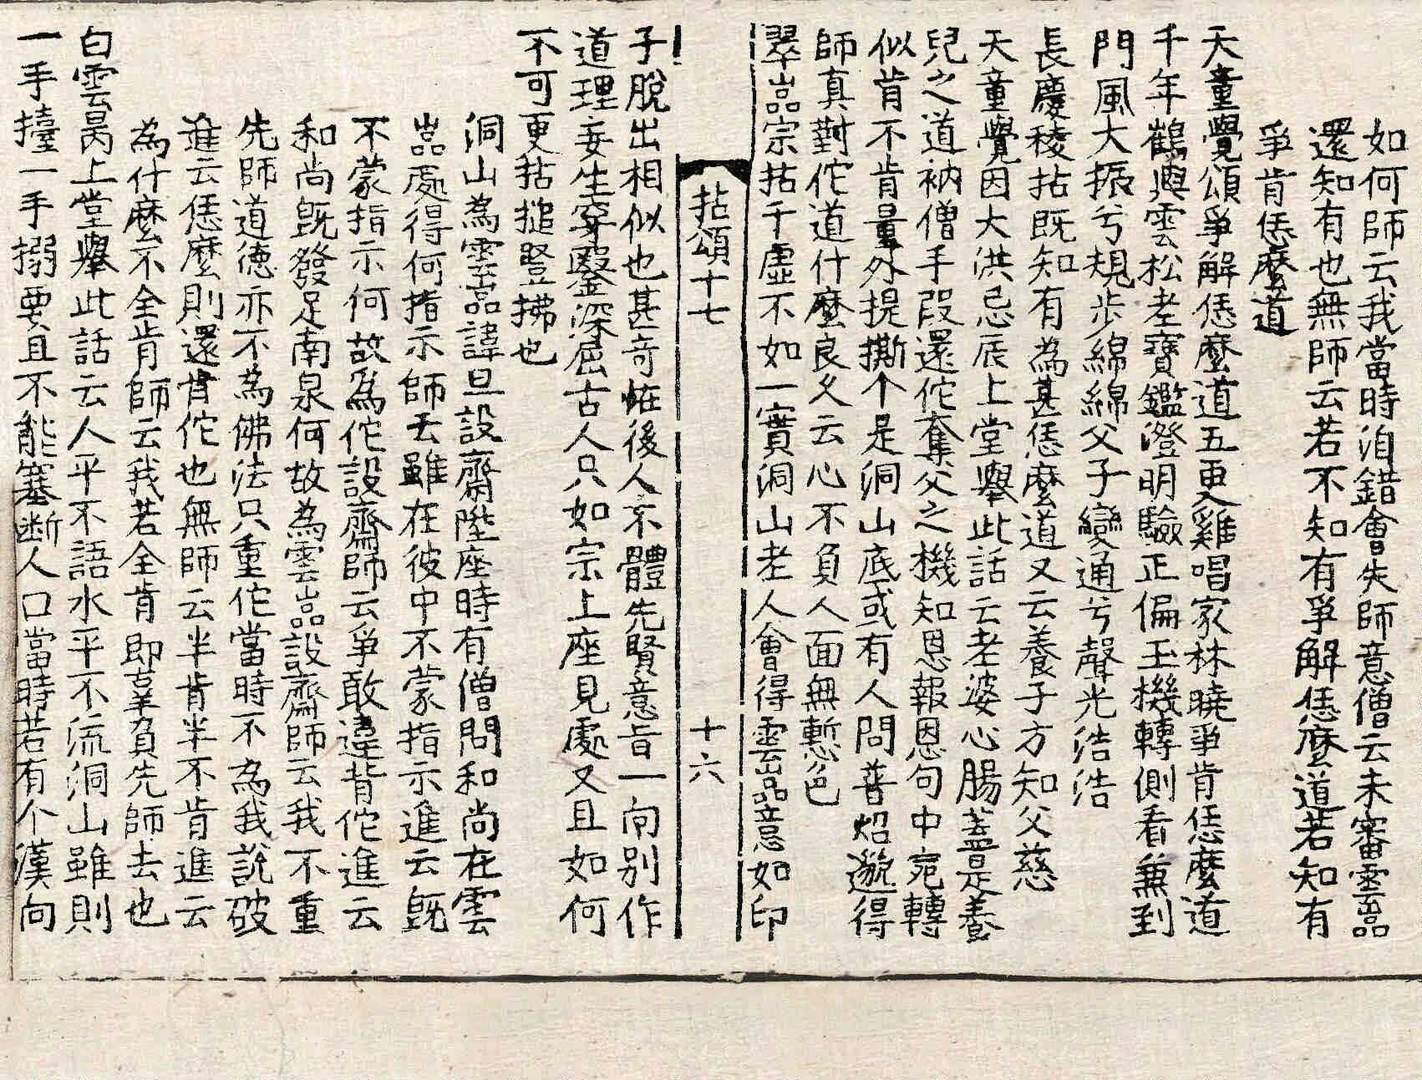 如何師云我當時洎錯會先師意僧云未審雲嵓
還知有也無師云若不知有爭解恁麽道若知有
爭肯恁麽道
天童覺頌爭解恁麽道五更雞唱家林曉爭肯恁麽道
千年鶴與雲松老寶鑑澄明驗正偏玉機轉側看兼到
門風大振兮規步綿綿父子變通兮聲光浩浩
長慶稜拈既知有為甚恁麽道又云養子方知父慈
天童覺因大洪忌辰上堂擧此話云老婆心腸盖是養
兒之道衲僧手段還佗奪父之機知恩報恩句中宛轉
似肯不肯量外提撕个是洞山底或有人問普炤邈得
師真對佗道什麽良久云心不負人面無慙色
翠嵓宗拈千虛不如一實洞山老人會得雲嵓意如印
拈頌十七
十六
子脫出相似也甚奇恠後人不體先賢意旨一向別作
道理妄生穿鑿深屈古人只如宗上座見處又且如何
不可更拈搥竪拂也
洞山為雲嵓諱旦設齋陞座時有僧問和尚在雲
嵓處得何指示師云雖在彼中不蒙指示進云旣
不蒙指示何故為佗設齋師云爭敢違背佗進云
和尚旣發足南泉何故為雲嵓設齋師云我不重
先師道德亦不為佛法只重佗當時不為我說破
進云恁麽則還肯佗也無師云半肯半不肯進云
為什麽不全肯師云我若全肯即辜負先師去也
白雲昺上堂擧此話云人平不語水平不流洞山雖則
一手擡一手搦要且不能塞斷人口當時若有个漢向